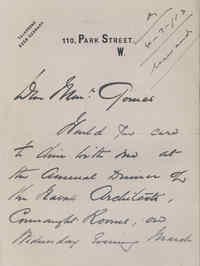 110, PARK STREET,
W.
Would you care
to dine with me at
the Annual Dinner of
the Naval Architects,
Connaught Rooms, on
Wednesday Evening March